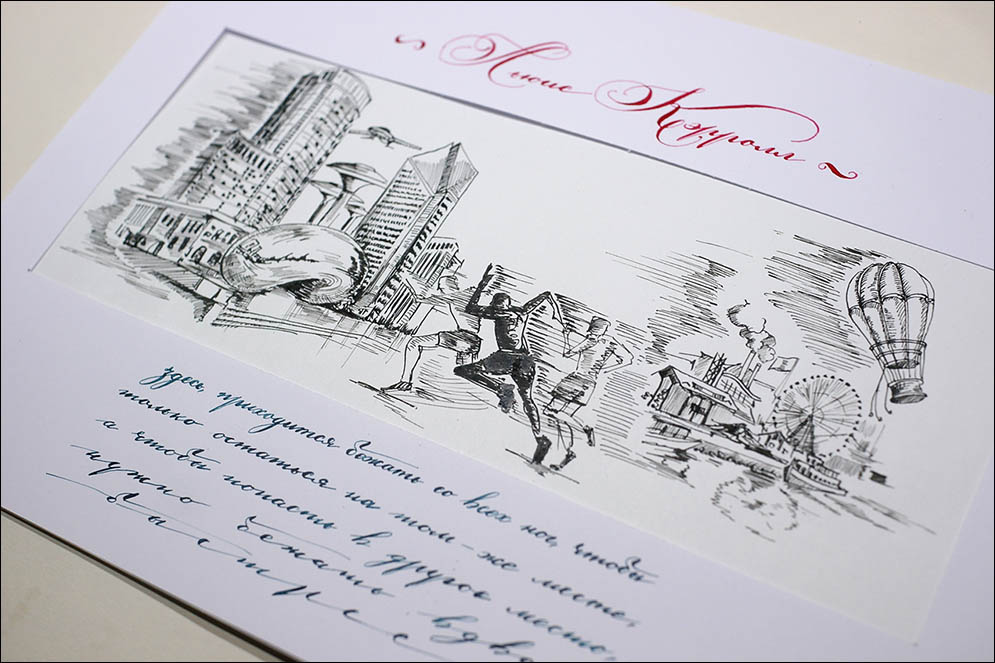 ~ Льюис Кэрролл ~
здесь приходится бежать со всех ног, чтобы
только остаться на том-же месте,
а чтобы попасть в другое место,
нужно бежать вдво
быстрее